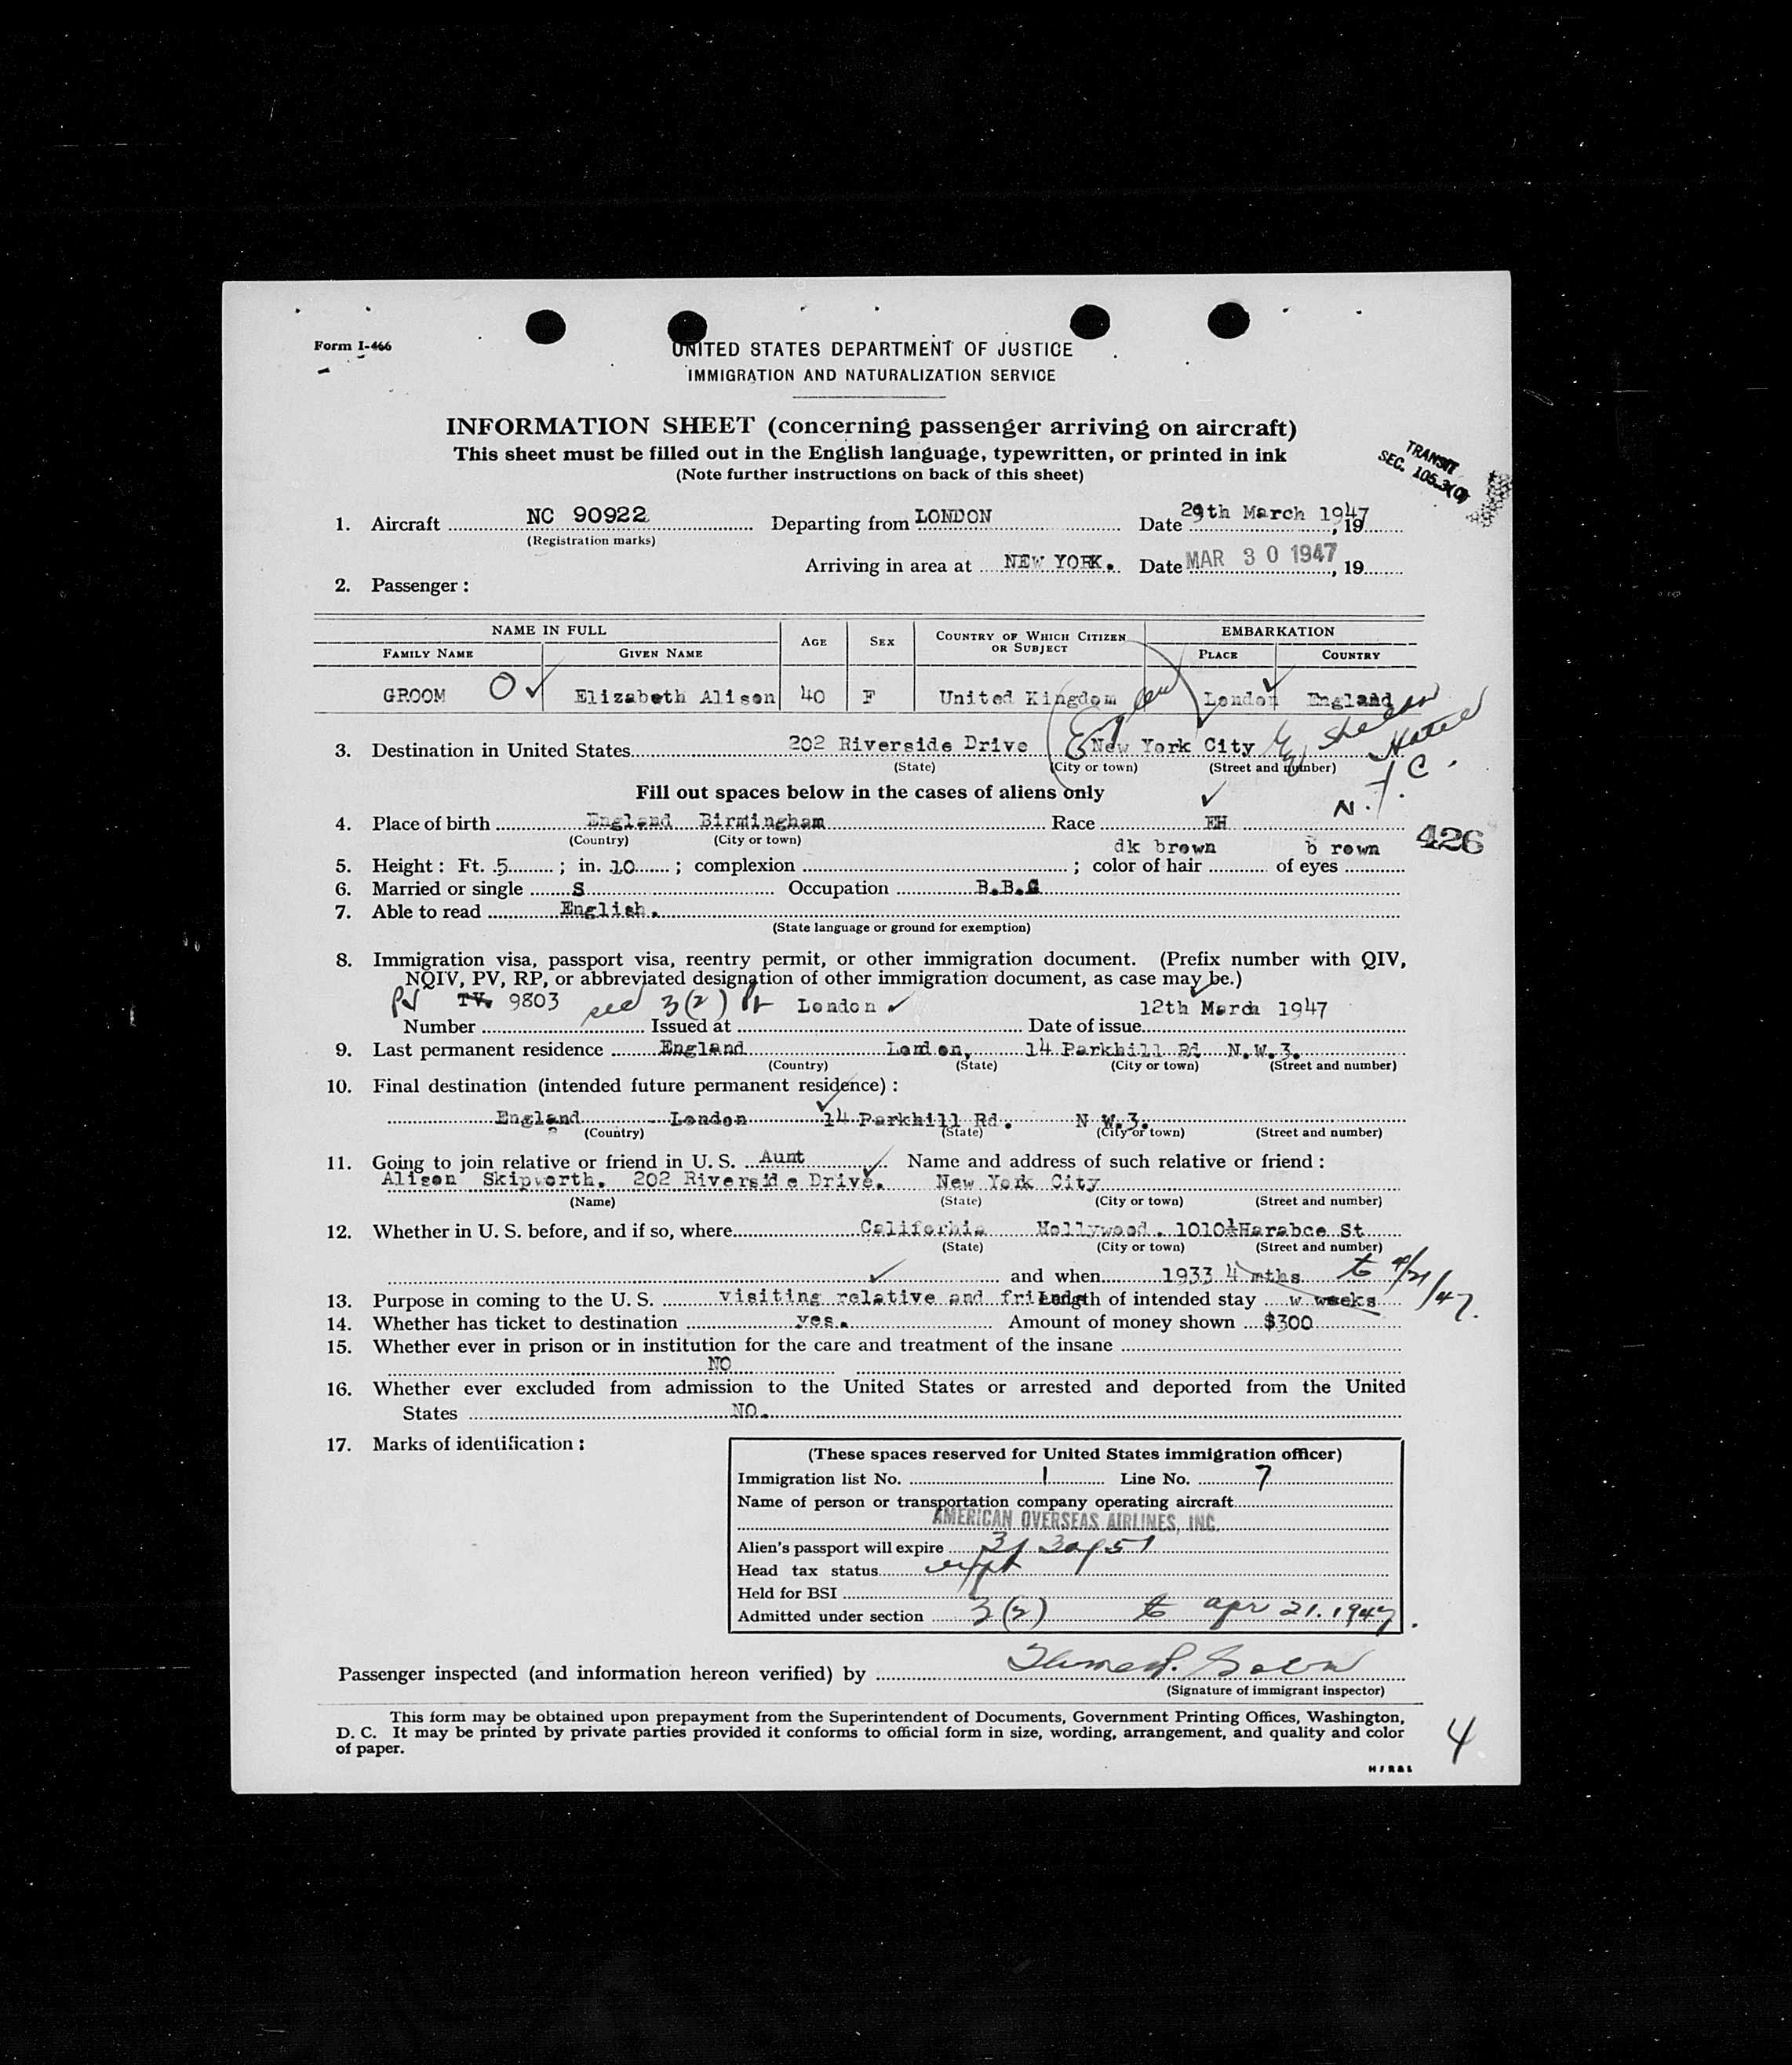 Form I-466
UNITED STATES DEPARTMENT OF JUSTICE
IMMIGRATION AND NATURALIZATION SERVICE
INFORMATION SHEET (concerning passenger arriving on aircraft)
This sheet must be filled out in the English language, typewritten, or printed in ink
(Note further instructions on back of this sheet)
TRANSIT
SEC. 105.3(c)
1. Aircraft NC 90922 Departing from LONDON Date 29th March 1947, 19
(Registration marks)
Arriving in area at NEW YORK. Date MAR 30 1947, 19
2. Passenger:
NAME IN FULL AGE SEX COUNTRY OF WHICH CITIZEN OR SUBJECT EMBARKATION
FAMILY NAME GIVEN NAME PLACE COUNTRY
GROOM O ✓ Elizabeth Alison 40 F United Kingdom London England
(England)
3. Destination in United States 202 Riverside Drive New York City
Hotel
N.Y.C.
(State) (City or town) (Street and number)
Fill out spaces below in the cases of aliens only
4. Place of birth England Birmingham Race EH
(Country) (City or town)
426
dk brown b rown
5. Height: Ft. 5; in. 10; complexion ; color of hair of eyes
6. Married or single S Occupation B.B.C
7. Able to read English.
(State language or ground for exemption)
8. Immigration visa, passport visa, reentry permit, or other immigration document. (Prefix number with QIV,
NQIV, PV, RP, or abbreviated designation of other immigration document, as case may be.)
PV TV. 9803 sec 3(2) London ✓ 12th March 1947
Number Issued at Date of issue
9. Last permanent residence England London, 14 Parkhill Rd N.W.3.
(Country) (State) (City or town) (Street and number)
10. Final destination (intended future permanent residence):
England London 14 Parkhill Rd. N W.3.
(Country) (State) (City or town) (Street and number)
11. Going to join relative or friend in U. S. Aunt Name and address of such relative or friend:
Alison Skipworth. 202 Riverside Drive. New York City
(Name) (State) (City or town) (Street and number)
12. Whether in U. S. before, and if so, where California Hollywood. 1010½ Harabce St
(State) (City or town) (Street and number)
and when 1933 4 mths to 4/21/47.
13. Purpose in coming to the U. S. visiting relative and friends Length of intended stay w weeks
14. Whether has ticket to destination yes. Amount of money shown $300
15. Whether ever in prison or in institution for the care and treatment of the insane
NO
16. Whether ever excluded from admission to the United States or arrested and deported from the United
States NO.
17. Marks of identification:
(These spaces reserved for United States immigration officer)
Immigration list No. 1 Line No. 7
Name of person or transportation company operating aircraft
AMERICAN OVERSEAS AIRLINES, INC.
Alien's passport will expire
Head tax status
Held for BSI
Admitted under section 3(2) to apr 21. 1947.
Passenger inspected (and information hereon verified) by
(Signature of immigrant inspector)
This form may be obtained upon prepayment from the Superintendent of Documents, Government Printing Offices, Washington,
D. C. It may be printed by private parties provided it conforms to official form in size, wording, arrangement, and quality and color
of paper.
4